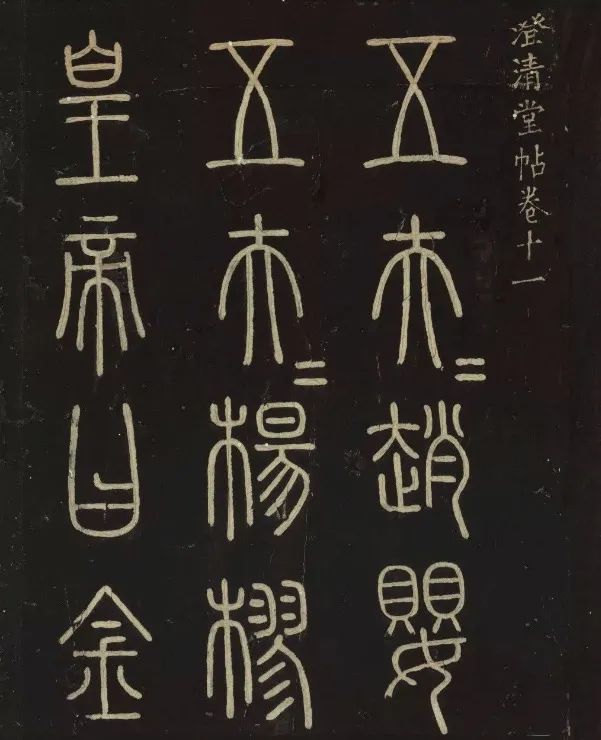 澄清堂帖卷十一
五夫=趙嬰
五夫=楊樛
皇帝曰金